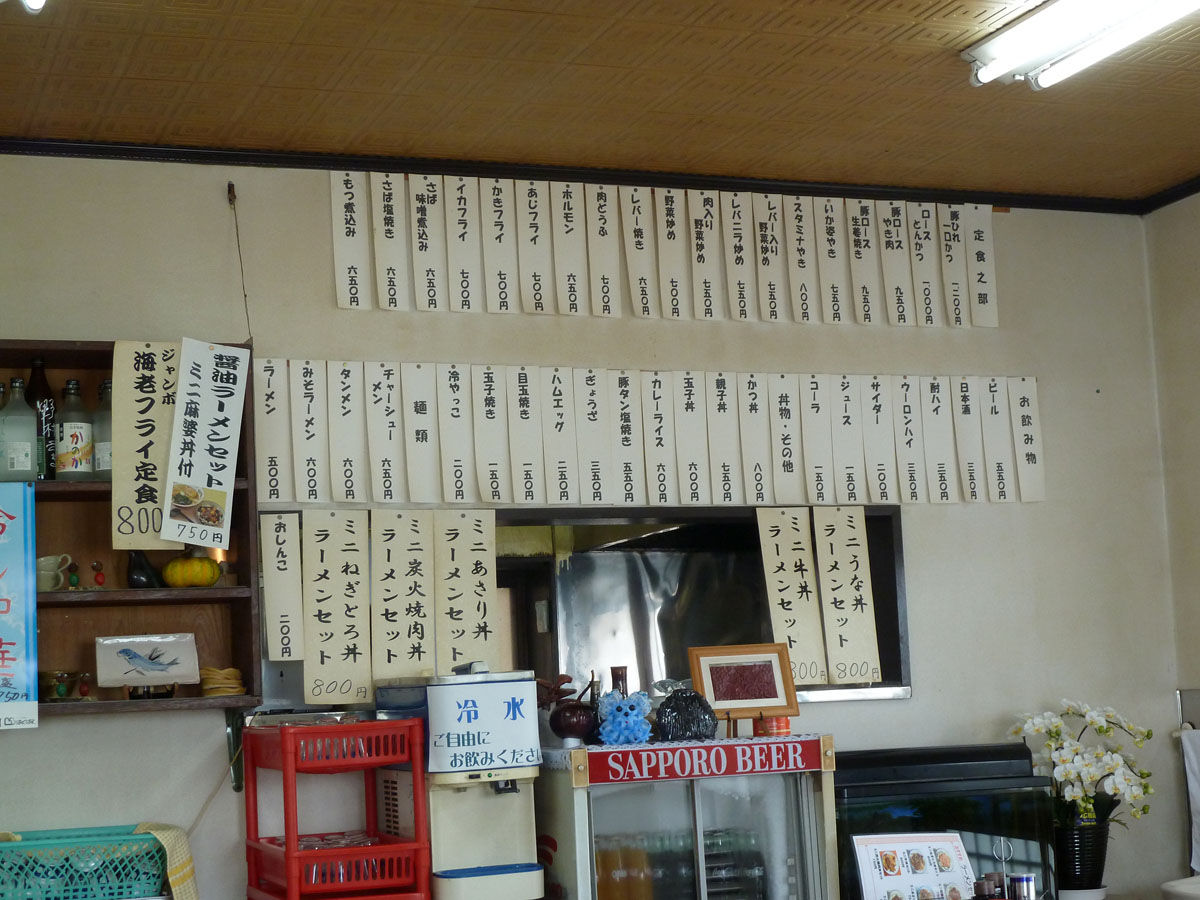 定食之部
豚ひれ一口かつ 一二〇〇円
ロースとんかつ 一〇〇〇円
豚ロースやき肉 九五〇円
豚ロース生姜焼き 九五〇円
いか姿やき 七五〇円
スタミナやき 八〇〇円
レバー入り野菜炒め 七五〇円
レバニラ炒め 七五〇円
肉入り野菜炒め 七五〇円
野菜炒め 七〇〇円
レバー焼き 六五〇円
肉どうふ 七〇〇円
ホルモン 六五〇円
あじフライ 七〇〇円
かきフライ 七〇〇円
イカフライ 七〇〇円
さば味噌煮込み 六五〇円
さば塩焼き 六五〇円
もつ煮込み 六五〇円
お飲み物
ビール 五五〇円
日本酒 三五〇円
酎ハイ 三五〇円
ウーロンハイ 三五〇円
サイダー 二〇〇円
ジュース 一五〇円
コーラ 一五〇円
丼物・その他
かつ丼 八〇〇円
親子丼 七五〇円
玉子丼 六〇〇円
カレーライス 六〇〇円
豚タン塩焼き 五五〇円
ぎょうざ 三五〇円
ハムエッグ 二五〇円
目玉焼き 一五〇円
玉子焼き 一五〇円
冷やっこ 二〇〇円
麺類
チャーシューメン 六五〇円
タンメン 六〇〇円
みそラーメン 六〇〇円
ラーメン 五〇〇円
醤油ラーメンセット
ミニ麻婆丼付
750円
ジャンボ
海老フライ定食
800
ミニうな丼
ラーメンセット
800円
ミニ牛丼
ラーメンセット
800円
ミニあさり丼
ラーメンセット
ミニ炭火焼肉丼
ラーメンセット
ミニねぎとろ丼
ラーメンセット
800円
おしんこ 二〇〇円
かのか
冷水
ご自由に
お飲みくださ
SAPPORO BEER
750円